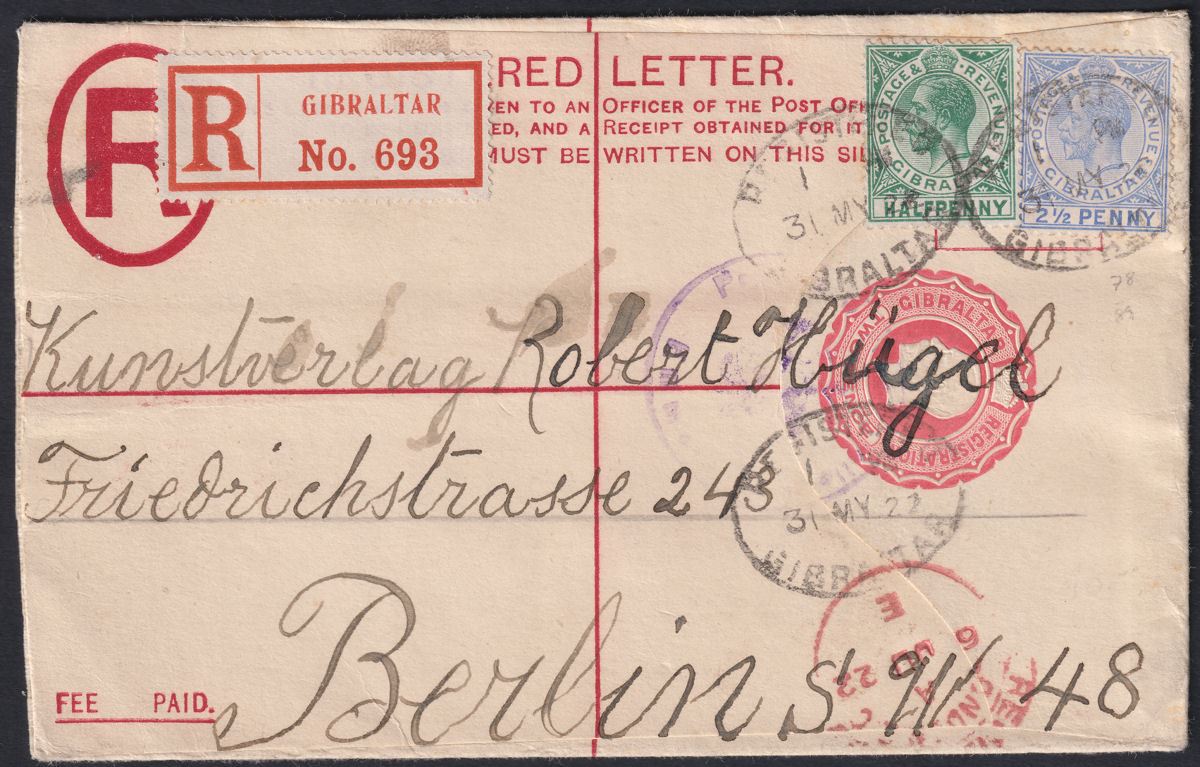 R
R
GIBRALTAR
No. 693
RED LETTER.
EN TO AN OFFICER OF THE POST OF
ED, AND A RECEIPT OBTAINED FOR IT
MUST BE WRITTEN ON THIS SI
POSTAGE & REVENUE
GIBRALTAR
HALFPENNY
POSTAGE & REVENUE
GIBRALTAR
2½ PENNY
1
31 MY 22
GIBRALTAR
GIBRALTAR
78
GIBRALTAR
REGISTRATION
Kunstverlag Robert Hügel
Friedrichstrasse 243
1
31 MY 22
GIBRALTAR
Berlin S W 48
FEE PAID.